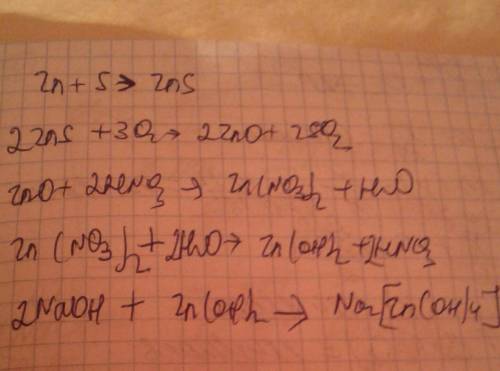 Zn + S → ZnS
2ZnS + 3O₂ → 2ZnO + 2SO₂
ZnO + 2HNO₃ → Zn(NO₃)₂ + H₂O
Zn(NO₃)₂ + 2H₂O → Zn(OH)₂ + 2HNO₃
2NaOH + Zn(OH)₂ → Na₂[Zn(OH)4]